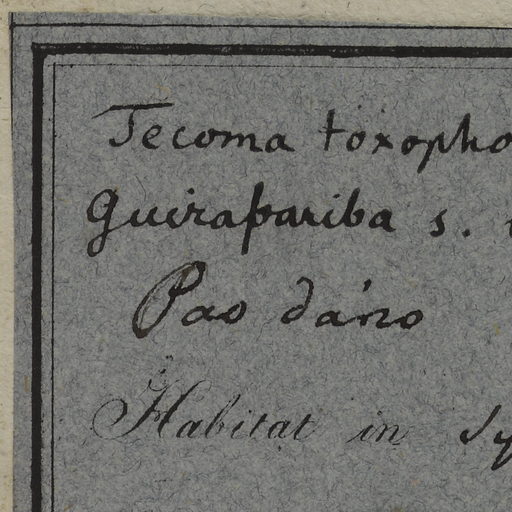 Tecoma toxopho
Guirapariba s.
Pao dáno
Habitat in Sy